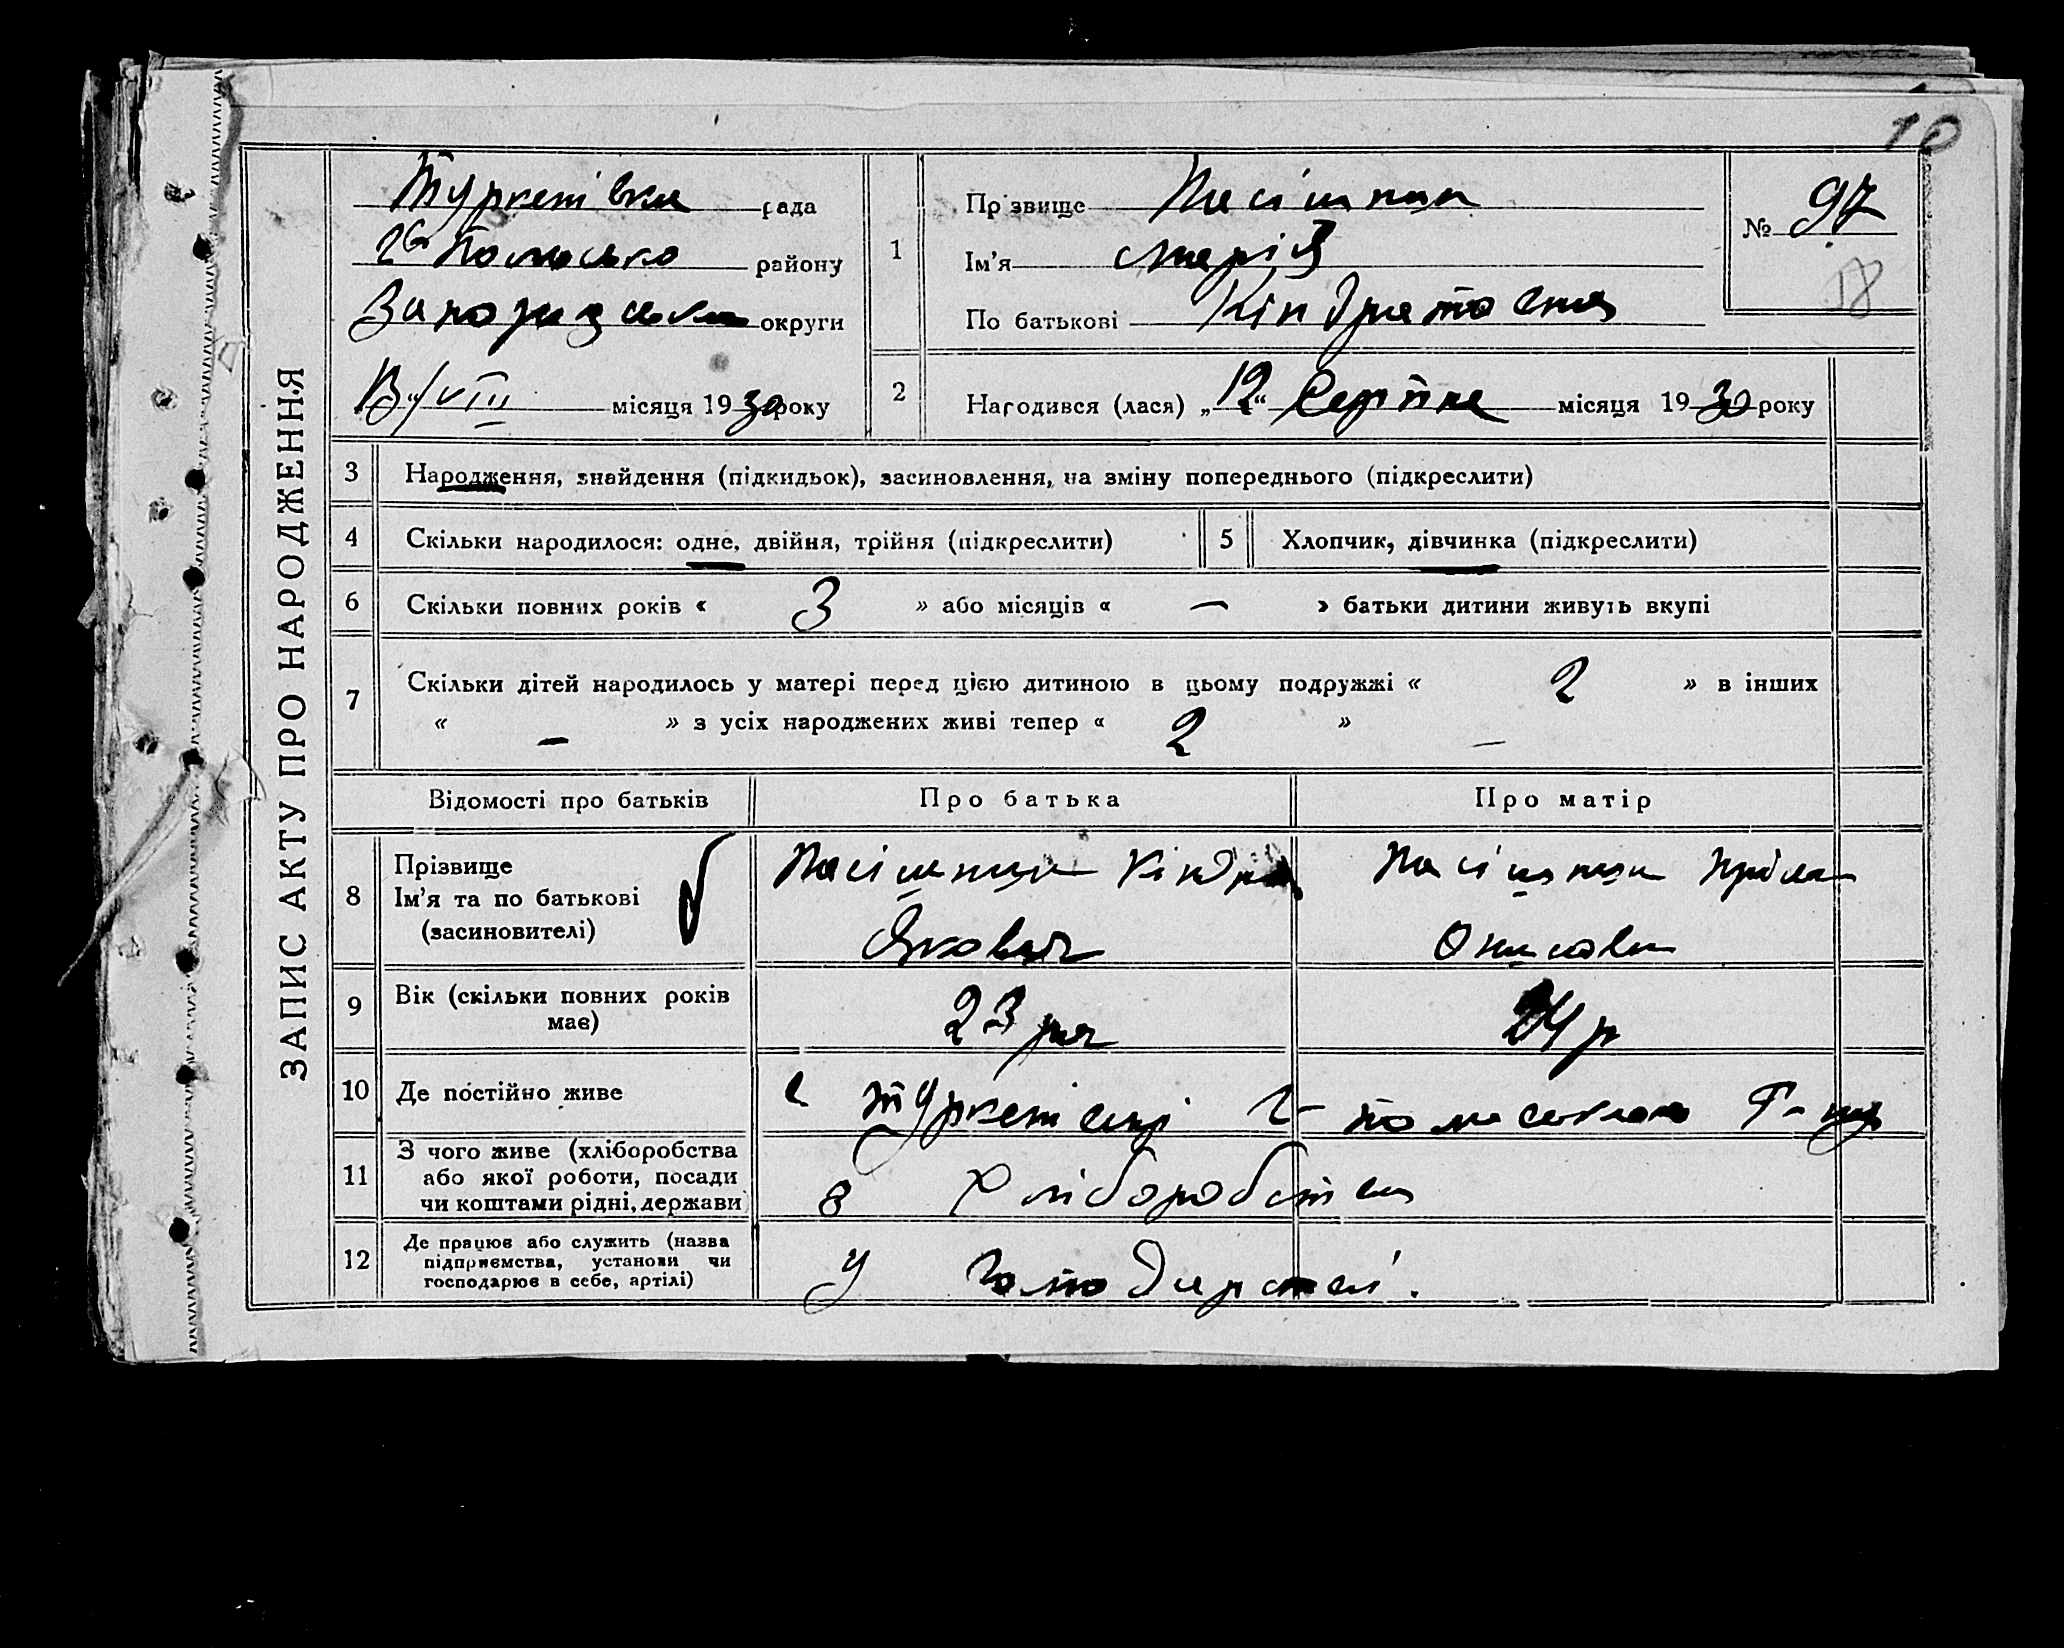 10
ЗАПИС АКТУ ПРО НАРОДЖЕННЯ
рада
району
округи
13/VIII місяця 1930 року
1
Прізвище
Ім'я Марія
По батькові Кіндратовна
№ 97
18
2
Народився (лася) „12“ Серпня місяця 1930 року
3 Народження, знайдення (підкидьок), засиновлення, на зміну попереднього (підкреслити)
4 Скільки народилося: одне, двійня, трійня (підкреслити)
5 Хлопчик, дівчинка (підкреслити)
6 Скільки повних років « 3 » або місяців « — » батьки дитини живуть вкупі
7 Скільки дітей народилось у матері перед цією дитиною в цьому подружжі « 2 » в інших
« — » з усіх народжених живі тепер « 2 »
Відомості про батьків
Про батька
Про матір
8 Прізвище
Ім'я та по батькові
(засиновителі)
Якович
9 Вік (скільки повних років
має)
23
24 р
10 Де постійно живе
11 З чого живе (хліборобства
або якої роботи, посади
чи коштами рідні, держави)
з хліборобства
12 Де працює або служить (назва
підприємства, установи чи
господарює в себе, артілі)
У